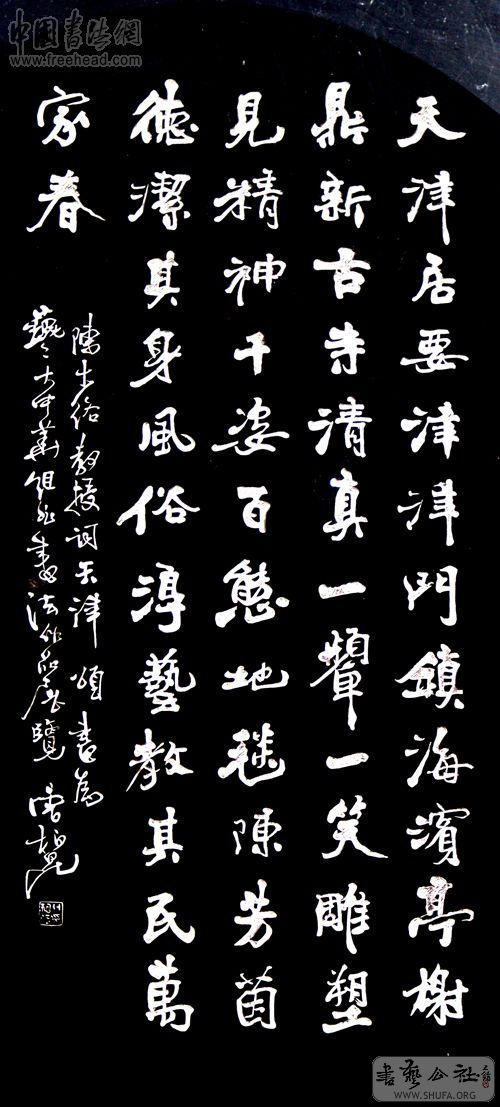 中国书法網
www.freehead.com
天津居要津津門鎮海濱亭榭
鼎新古寺清真一顰一笑雕塑
見精神千姿百態地毯陳芳茵
德潔其身風俗淳藝教其民萬
家春
教授詞天津頌書為
書法作品展覽
書藝公社
WWW.SHUFA.ORG